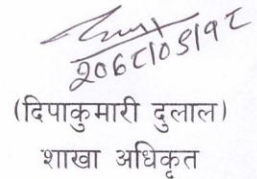 २०६८।०५।१८
(दिपाकुमारी दुलाल)
शाखा अधिकृत